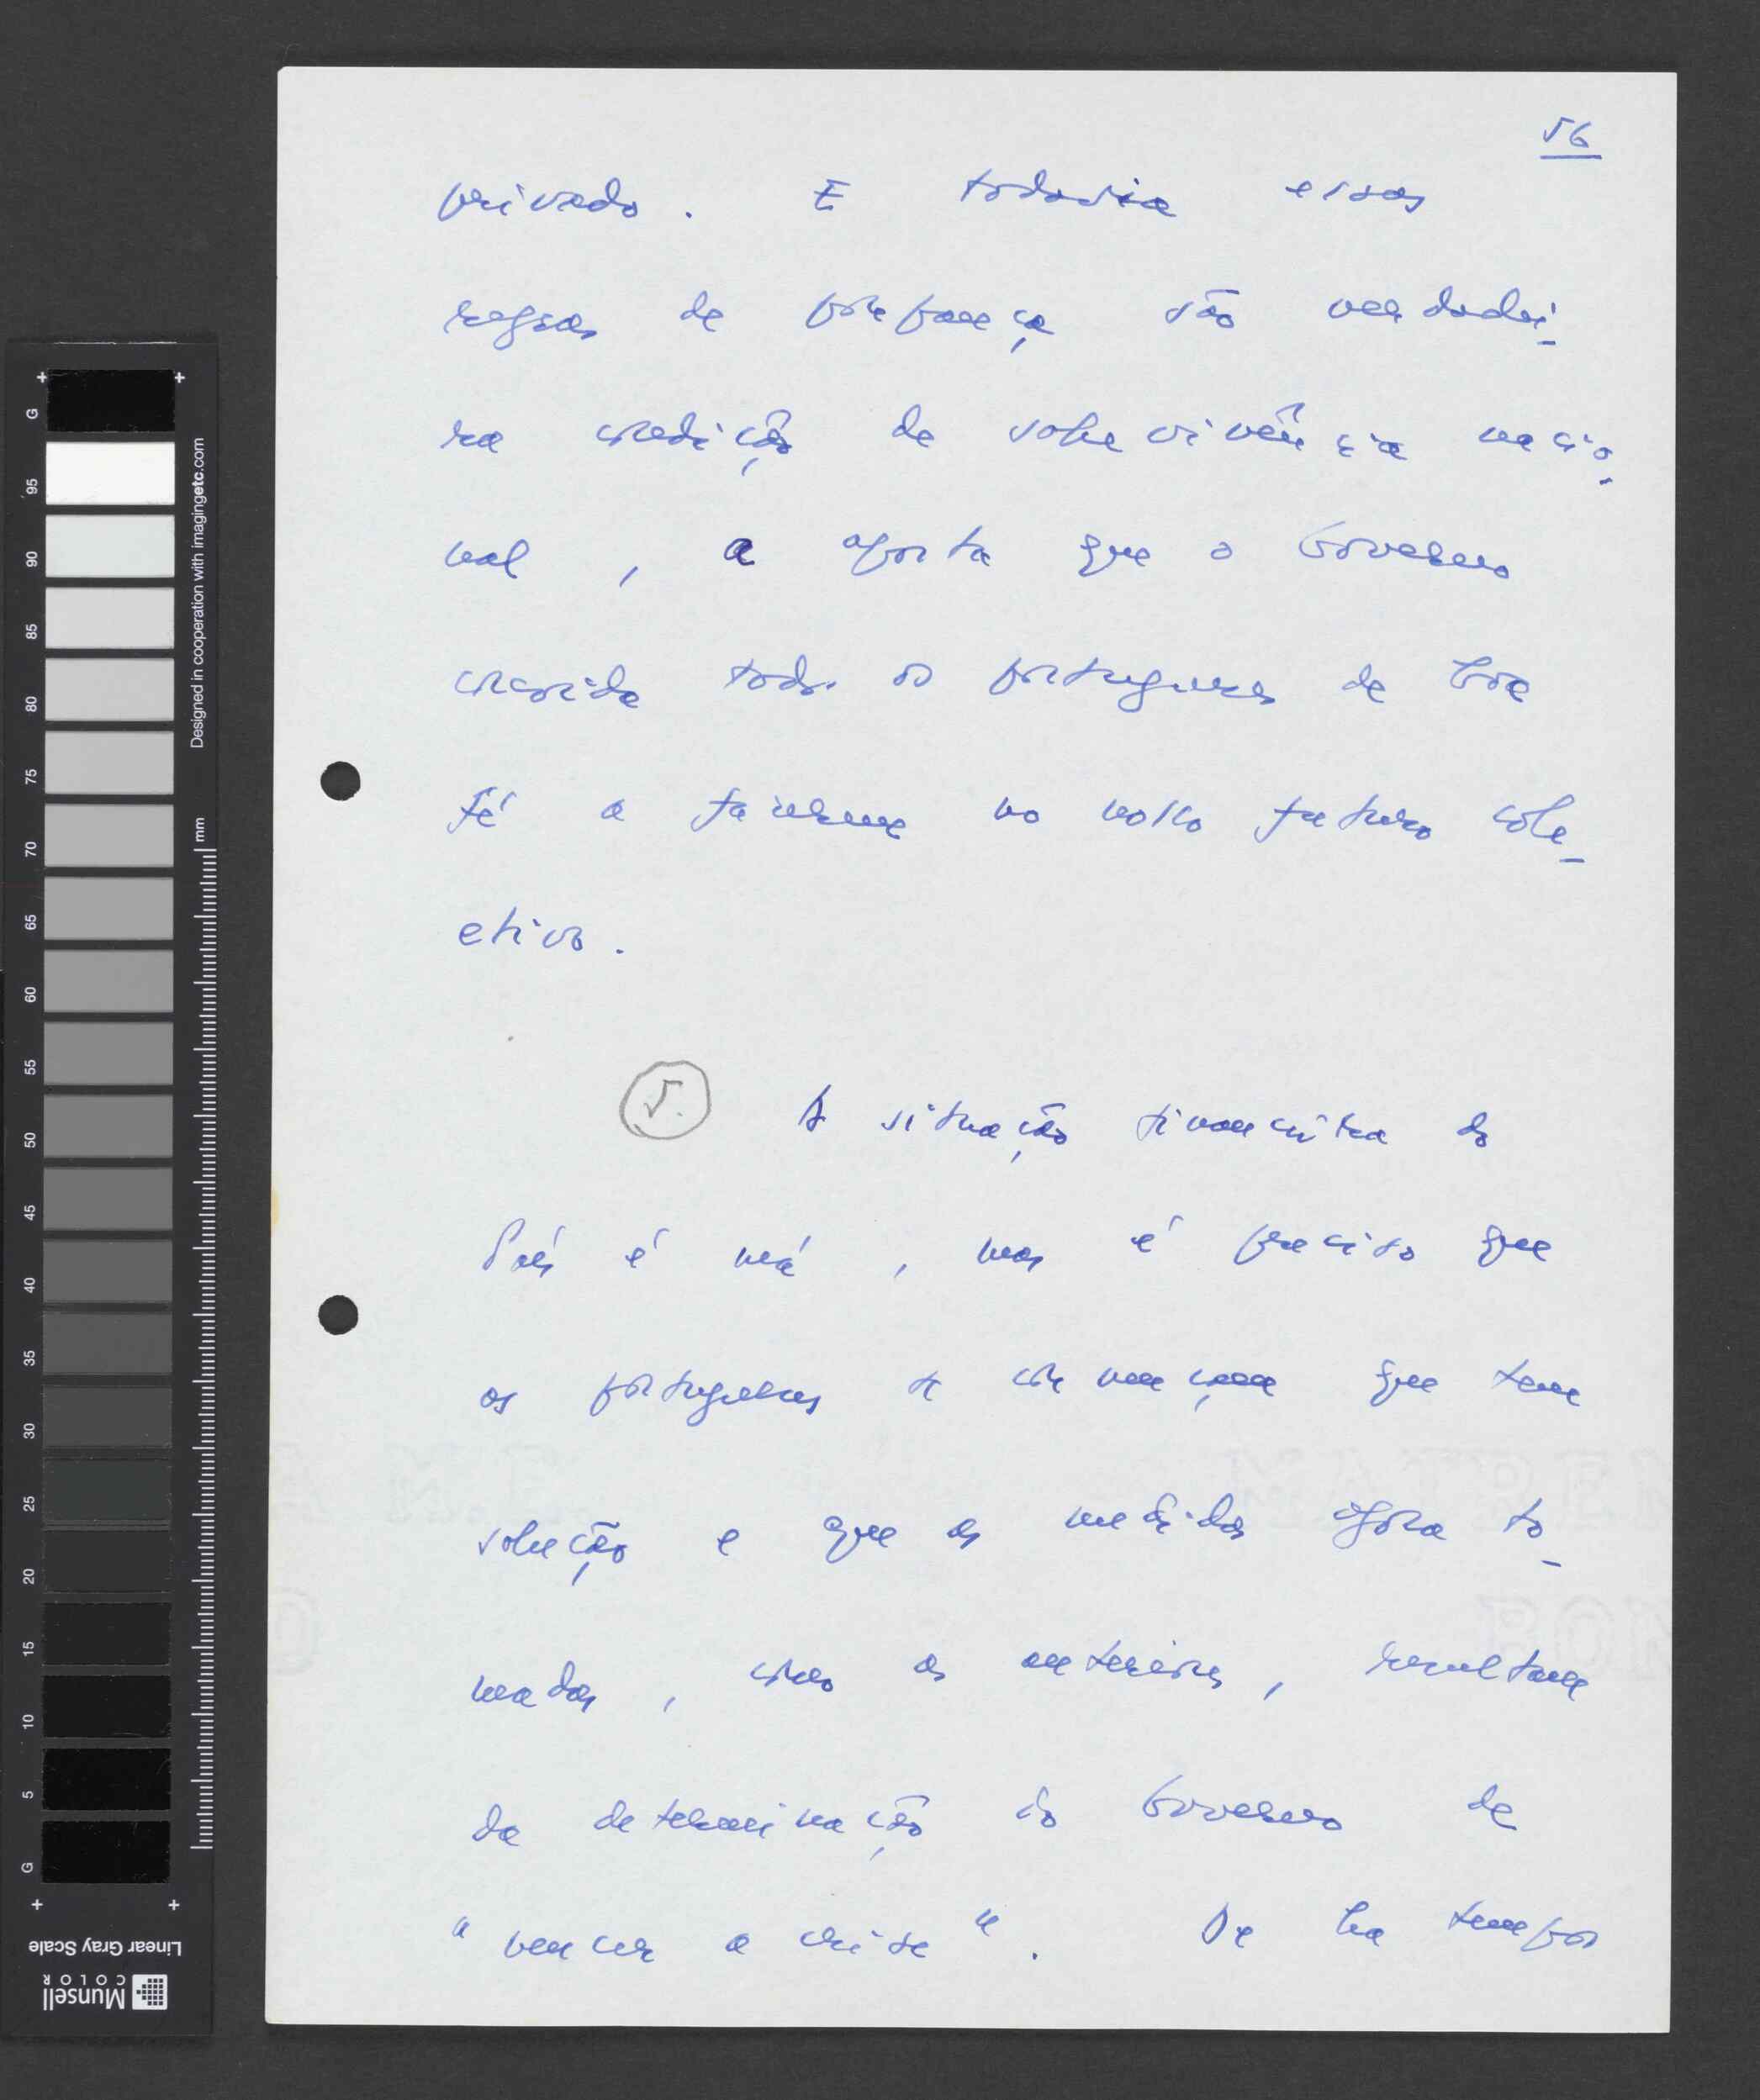 56
privado. E todavia essas
regras de poupança são verdadei-
ra condição de sobrevivência nacio-
nal, a aposta que o Governo
convida todos os portugueses de boa
fé a fazerem no nosso futuro col-
etivo.
5. A situação financeira do
País é má, mas é preciso que
os portugueses se convençam que tem
solução e que as medidas agora to-
madas, como as anteriores, resultam
da determinação do Governo de
"vencer a crise". De há tempos
G 95 90 85 80 75 70 65 60 55 50 45 40 35 30 25 20 15 10 5 G
mm
Designed in cooperation with imagingetc.com
Linear Gray Scale
Munsell
COLOR